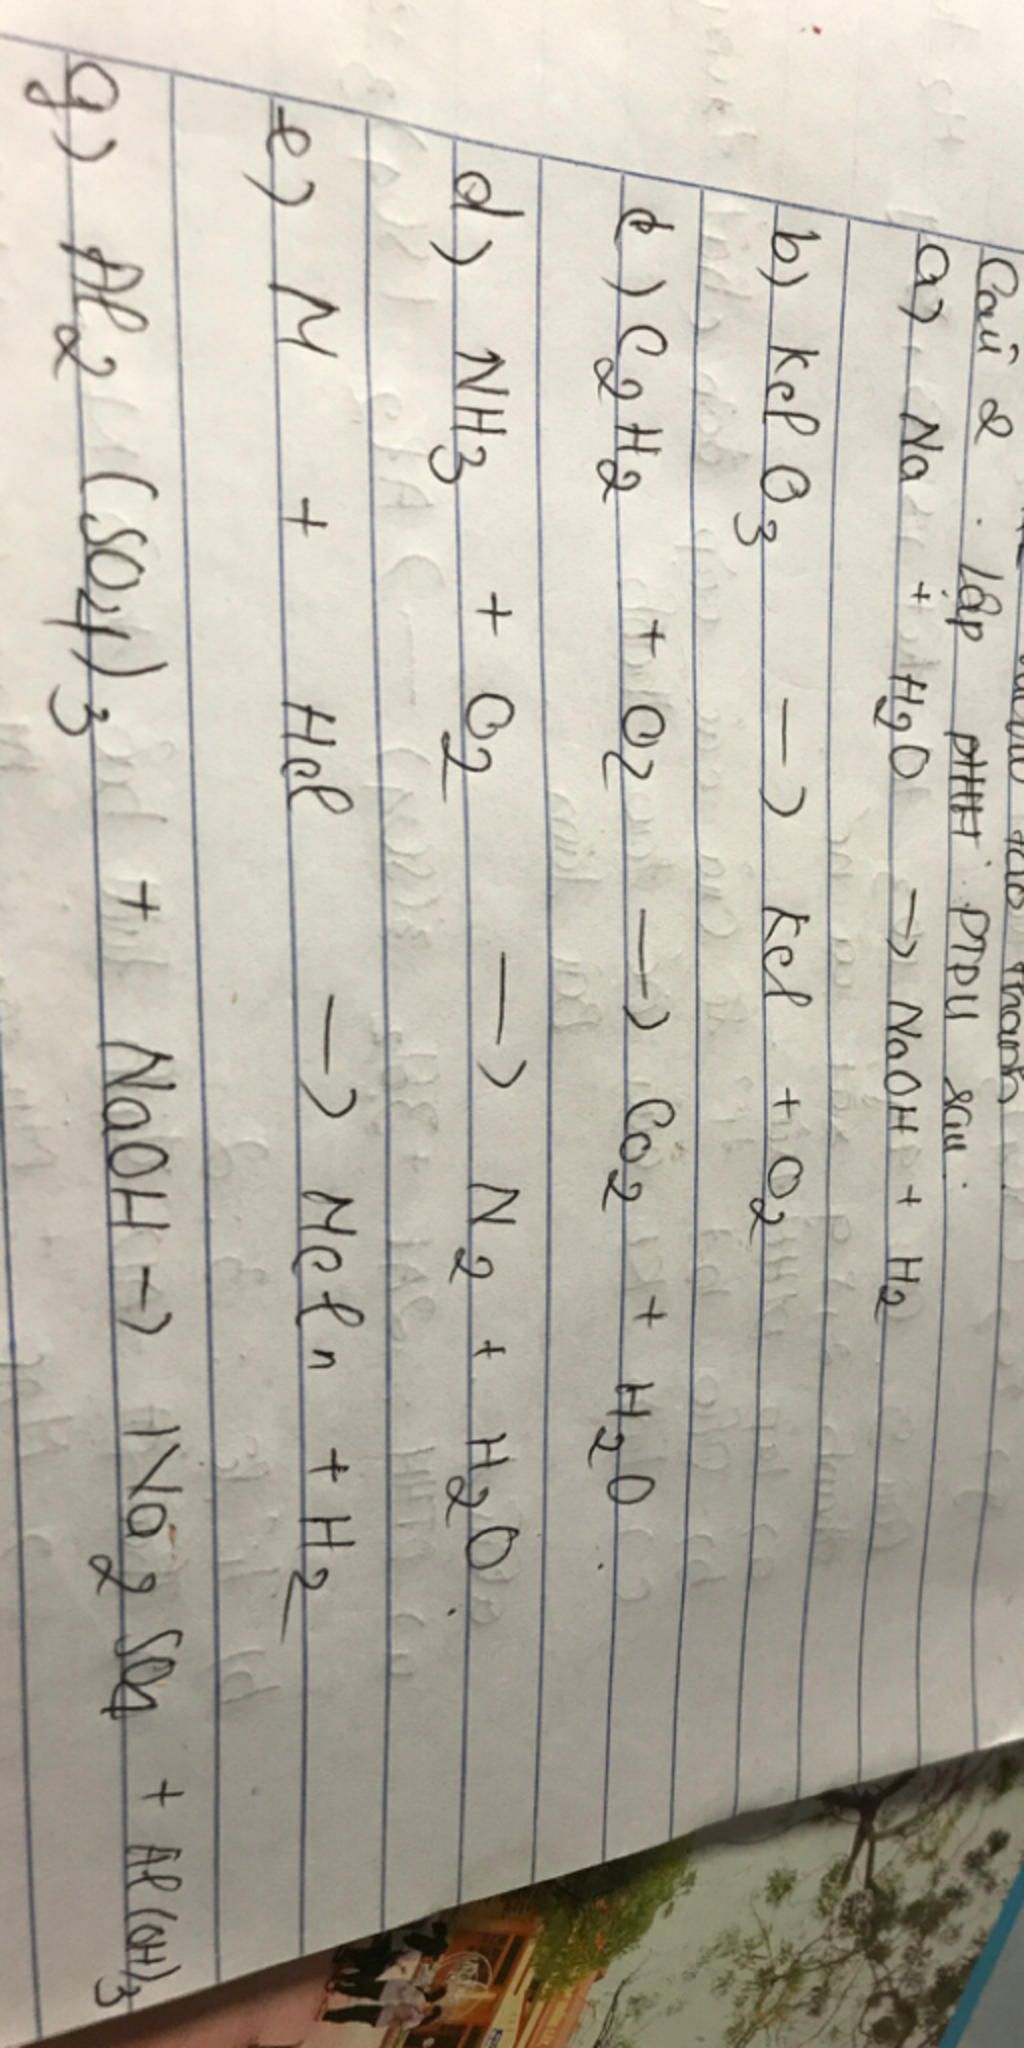 thành
Câu 2. lập PHHH PTPU sau:
a) Na + H2O → NaOH + H2
b) KclO3 → Kcl + O2
c) C2H2 + O2 → CO2 + H2O
d) NH3 + O2 → N2 + H2O
e) M + Hcl → Mcln + H2
g) Al2(SO4)3 + NaOH → Na2SO4 + Al(OH)3